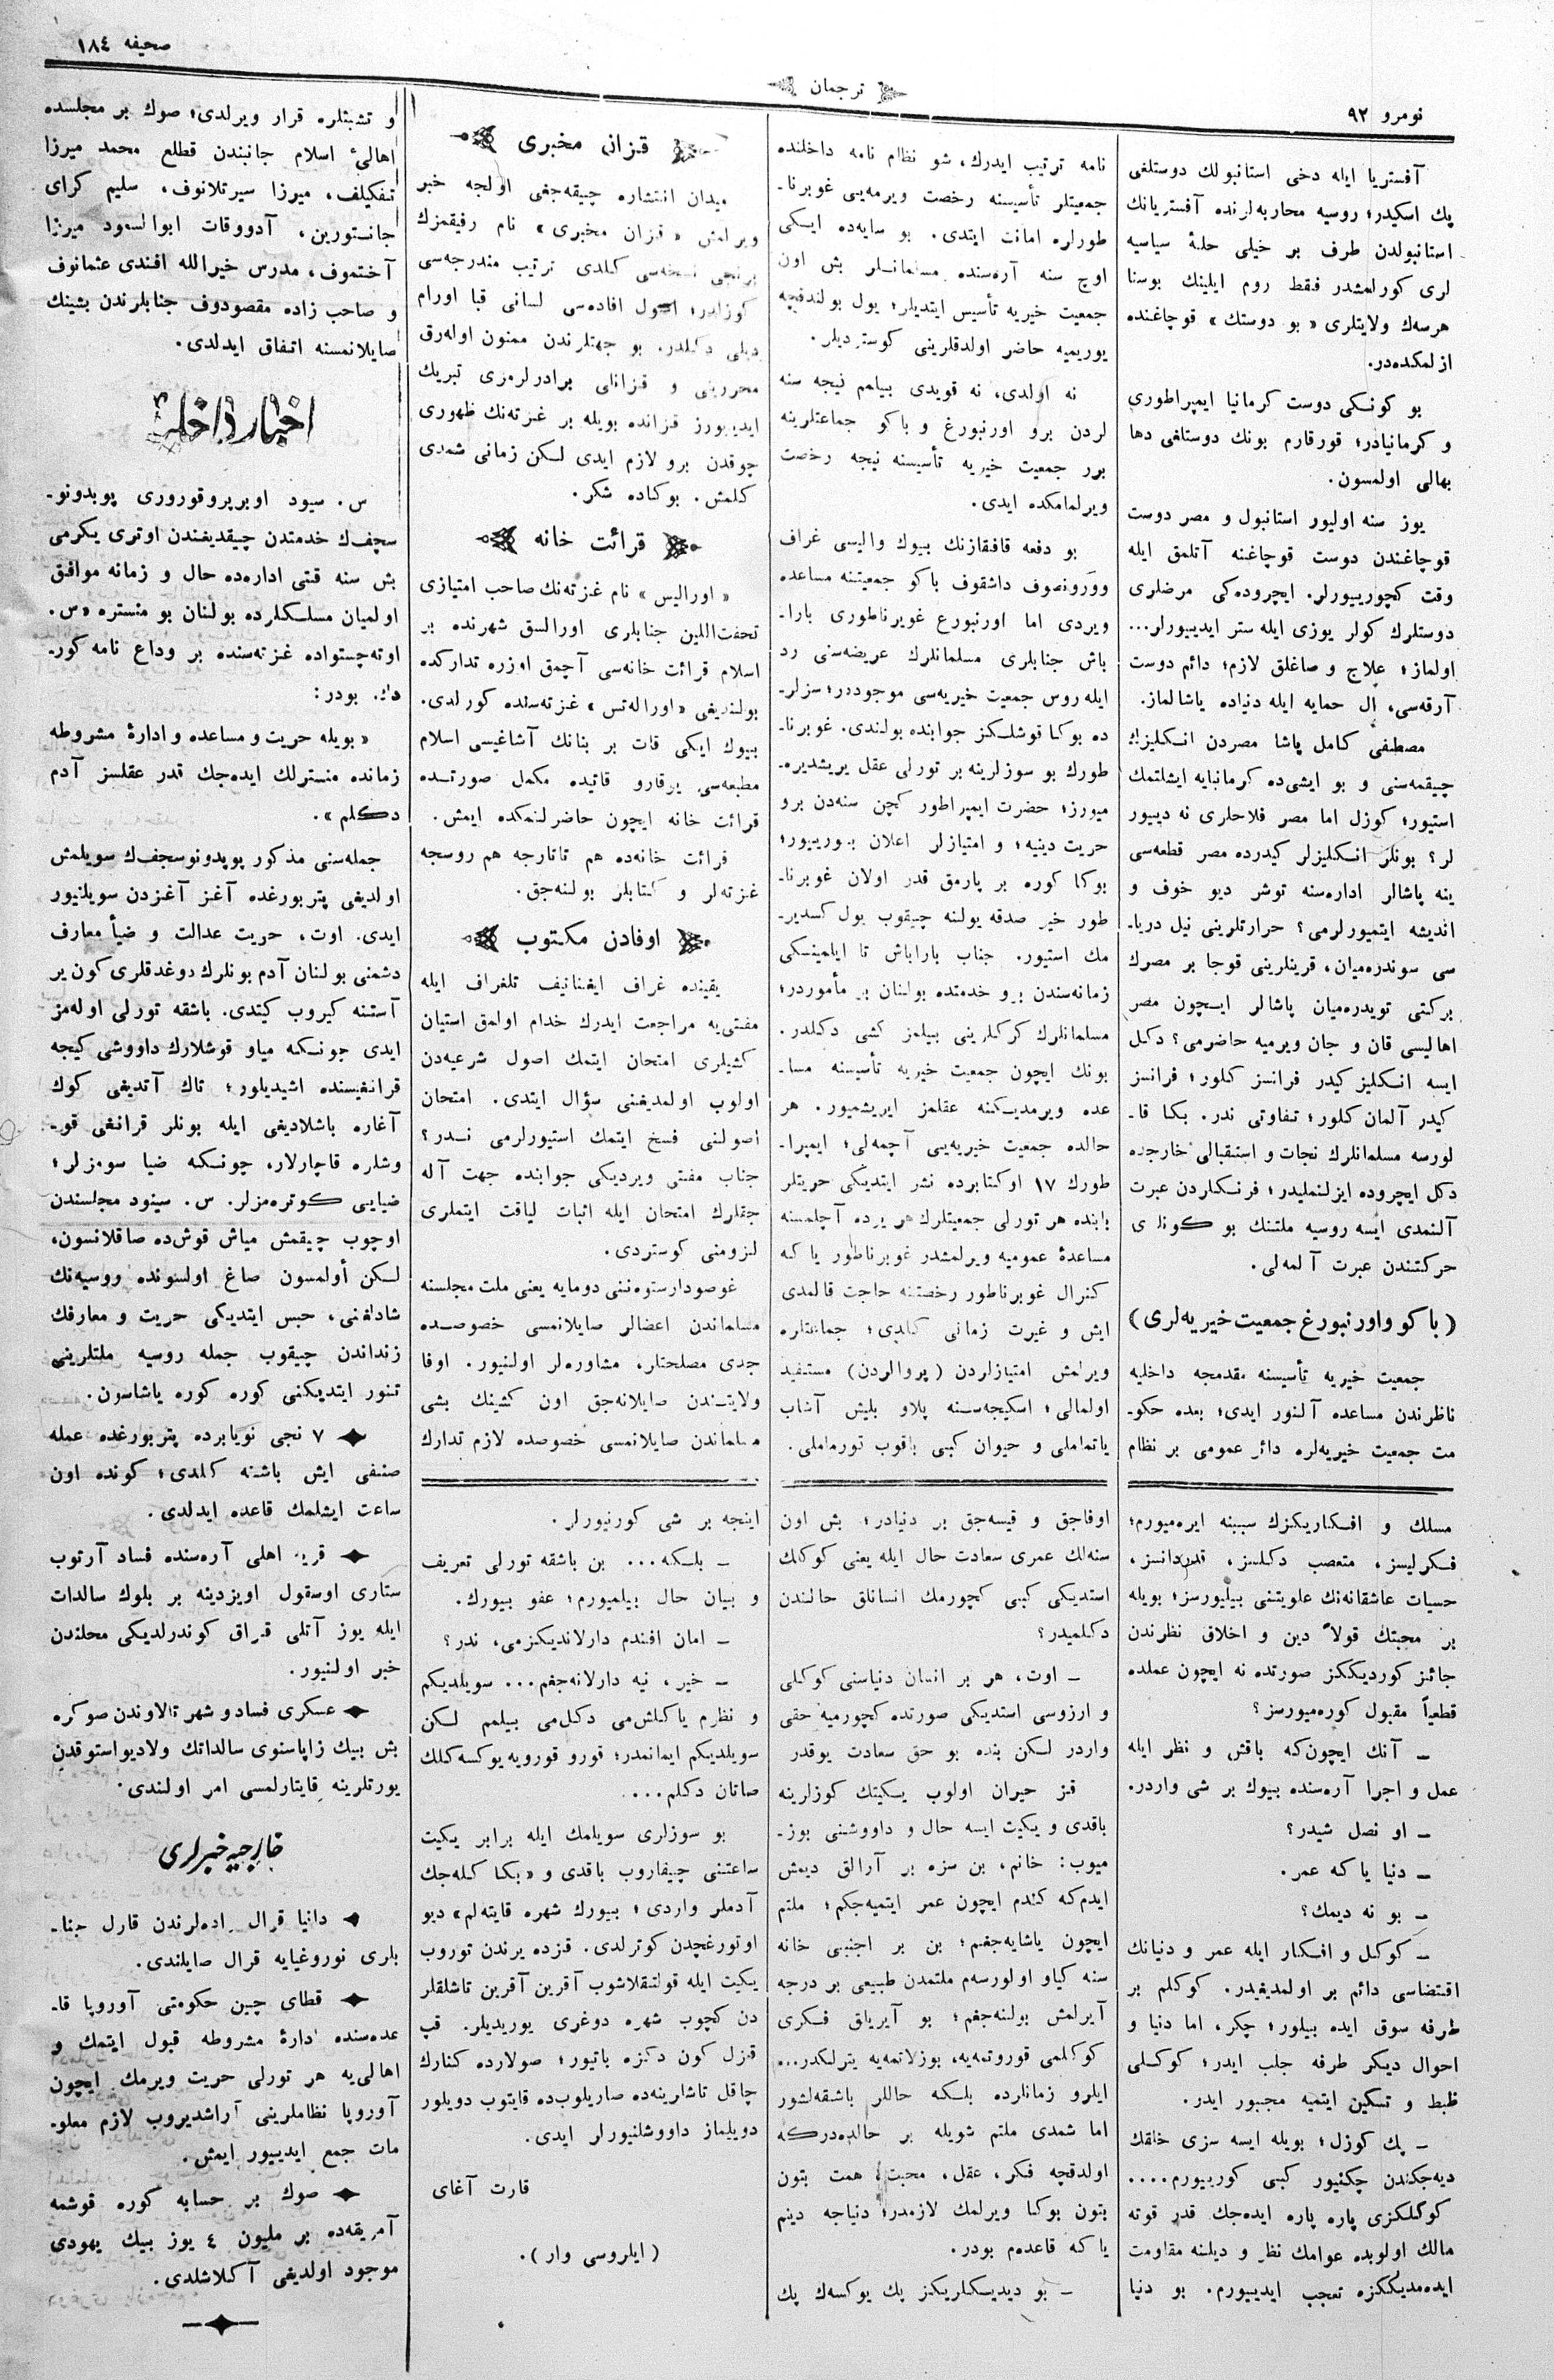 نومرو ٩٢
ترجمان
صحیفه ١٨٤
آفستریا ایله دخی استانبولك دوستلغی
پك اسکیدر؛ روسیه محاربه‌لرنده آفستریانك
استانبولدن طرف بر خیلی حلهٔ سیاسیه
لری کورلمشدر فقط روم ایلینك بوسنا
هرسه‌ك ولایتلری «بو دوستك» قوچاغنده
ازلمکده‌در.
بو کونکی دوست کرمانیا ایمپراطوری
و کرمانیادر؛ قورقارم بونك دوستلغی دها
بهالی اولمسون.
یوز سنه اولیور استانبول و مصر دوست
قوچاغندن دوست قوچاغنه آتلمق ایله
وقت کچوریبورلر. ایچروده‌کی مرضلری
دوستلرك کولر یوزی ایله ستر ایدییورلر...
اولماز؛ علاج و صاغلق لازم؛ دائم دوست
آرقه‌سی، ال حمایه ایله دنیاده یاشالماز.
مصطفی کامل پاشا مصردن انکلیزلك
چیقمه‌سنی و بو ایشی‌ده کرمانیایه ایشلتمك
استیور؛ کوزل اما مصر فلاحلری نه دییور
لر؟ بونلر انکلیزلر کیدرده مصر قطعه‌سی
ینه پاشالر اداره‌سنه توشر دیو خوف و
اندیشه ایتمیورلرمی؟ حرارتلرینی نیل دریا-
سی سوندره‌میان، قرینلرینی قوجا بر مصرك
برکتی تویدره‌میان پاشالر ایچون مصر
اهالیسی قان و جان ویرمیه حاضرمی؟ دکل
ایسه انکلیز کیدر فرانسز کلور؛ فرانسز
کیدر آلمان کلور؛ تفاوتی ندر. بکا قا-
لورسه مسلمانلرك نجات و استقبالی خارجده
دکل ایچروده ایزلنملیدر؛ فرنکلردن عبرت
آلنمدی ایسه روسیه ملتنك بو کونلی
حرکتندن عبرت آلمه‌لی.
(باکو و اورنبورغ جمعیت خیریه‌لری)
جمعیت خیریه تأسیسنه مقدمجه داخلیه
ناظرندن مساعده آلنور ایدی؛ بعده حکو-
مت جمعیت خیریه‌لره دائر عمومی بر نظام
نامه ترتیب ایدرك، شو نظام نامه داخلنده
جمعیتلر تأسیسنه رخصت ویرمه‌یی غوبرنا-
طورلره امانت ایتدی. بو سایه‌ده ایکی
اوچ سنه آره‌سنده مسلمانلر بش اون
جمعیت خیریه تأسیس ایتدیلر؛ یول بولندقچه
یوریمیه حاضر اولدقلرینی کوستردیلر.
نه اولدی، نه قویدی بیلمم نیجه سنه
لردن برو اورنبورغ و باکو جماعتلرینه
برر جمعیت خیریه تأسیسنه نیجه رخصت
ویرلمامکده ایدی.
بو دفعه قافقازنك بیوك والیسی غراف
وورونصوف داشقوف باکو جمعیتنه مساعده
ویردی اما اورنبورغ غوبرناطوری بارا-
باش جنابلری مسلمانلرك عریضه‌سنی رد
ایله روس جمعیت خیریه‌سی موجوددر؛ سزلر-
ده بوکا قوشلکز جوابنده بولندی. غوبرنا-
طورك بو سوزلرینه بر تورلی عقل یریشدیره-
میورز؛ حضرت ایمپراطور کچن سنه‌دن برو
حریت دینیه؛ و امتیازلر اعلان بیورییور؛
بوکا کوره بر پارمق قدر اولان غوبرنا-
طور خیر صدقه یولنه چیقوب یول کسدیر-
مك استیور. جناب باراباش تا ایلمینسکی
زمانه‌سندن برو خدمتده بولنان بر مأموردر؛
مسلمانلرك کرکلرینی بیلمز کشی دکلدر.
بونك ایچون جمعیت خیریه تأسیسنه مسا-
عده ویرمدیکنه عقلمز ایریشمیور. هر
حالده جمعیت خیریه‌یی آچمه‌لی؛ ایمپرا-
طورك ١٧ اوکتابرده نشر ایتدیکی حریتلر
یابنده هر تورلی جمعیتلرك هر یرده آچلمسنه
مساعدهٔ عمومیه ویرلمشدر غوبرناطور یا که
کنرال غوبرناطور رخصتنه حاجت قالمدی
ایش و غیرت زمانی کلدی؛ جماعتلره
ویرلمش امتیازلردن (پروالردن) مستفید
اولمالی؛ اسکیجه‌سنه پلاو بلیش آشاب
یاتماملی و حیوان کبی باقوب تورماملی.
قزان مخبری
میدان انتشاره چیقه‌جغی اولجه خبر
ویرلمش «قزان مخبری» نام رفیقمزك
برنجی نسخه‌سی کلدی ترتیب مندرجه‌سی
کوزلدر؛ اصول افاده‌سی لسانی قبا اورام
دیلی دکلدر. بو جهتلرندن ممنون اوله‌رق
محررینی و قزانلی برادرلرمزی تبریك
ایدییورز قزانده بویله بر غزته‌نك ظهوری
چوقدن برو لازم ایدی لکن زمانی شمدی
کلمش. بوکاده شکر.
قرائت خانه
«اورالیس» نام غزته‌نك صاحب امتیازی
تحفت‌اللین جنابلری اورالسق شهرنده بر
اسلام قرائت خانه‌سی آچمق اوزره تدارکده
بولندیغی «اوراله‌تس» غزته‌سنده کورلدی.
بیوك ایکی قات بر بنانك آشاغیسی اسلام
مطبعه‌سی یوقارو قاتیده مکمل صورتده
قرائت خانه ایچون حاضرلنمکده ایمش.
قرائت خانه‌ده هم تاتارجه هم روسجه
غزته‌لر و کتابلر بولنه‌جق.
اوفادن مکتوب
یقینده غراف ایغناتیف تلغراف ایله
مفتی‌یه مراجعت ایدرك خدام اولمق استیان
کشیلری امتحان ایتمك اصول شرعیه‌دن
اولوب اولمدیغنی سؤال ایتدی. امتحان
اصولنی فسخ ایتمك استیورلرمی ندر؟
جناب مفتی ویردیکی جوابنده جهت آله
جقلرك امتحان ایله اثبات لیاقت ایتملری
لزومنی کوستردی.
غوصودارستوه‌ننی دومایه یعنی ملت مجلسنه
مسلماندن اعضالر صایلانمسی خصوصده
جدی مصلحتلر، مشاوره‌لر اولنیور. اوفا
ولایتندن صایلانه‌جق اون کشینك بشی
مسلماندن صایلانمسی خصوصده لازم تدارك
و تشبثلره قرار ویرلدی؛ صوك بر مجلسده
اهالیٔ اسلام جانبندن قطلع محمد میرزا
تفکیلف، میرزا سیرتلانوف، سلیم کرای
جانتورین، آدووقات ابوالسعود میرزا
آختموف، مدرس خیرالله افندی عثمانوف
و صاحب زاده مقصودوف جنابلرندن بشینك
صایلانمسنه اتفاق ایدلدی.
اخبار داخلیه
س. سیود اوبرپروقوروری پوبدونو-
سچف‌ك خدمتدن چیقدیغندن اوتری یکرمی
بش سنه قتی اداره‌ده حال و زمانه موافق
اولمیان مسلکلرده بولنان بو منستره «س.
اوته‌چستواده غزته‌سنده بر وداع نامه کور-
دك. بودر:
«بویله حریت و مساعده و ادارهٔ مشروطه
زمانده منسترلك ایده‌جك قدر عقلسز آدم
دکلم».
جمله‌سنی مذکور پوبدونوسجف‌ك سویلمش
اولدیغی پتربورغده آغز آغزدن سویلنیور
ایدی. اوت، حریت عدالت و ضیأ معارف
دشمنی بولنان آدم بونلرك دوغدقلری کون یر
آستنه کیروب کیتدی. باشقه تورلی اوله‌مز
ایدی چونکه میاو قوشلارك داووشی کیجه
قرانغیسنده اشیدیلور؛ تاك آتدیغی کوك
آغاره باشلادیغی ایله بونلر قرانغی قو-
وشلره قاچارلار، چونکه ضیا سومزلر؛
ضیایی کوتره‌مزلر. س. سینود مجلسندن
اوچوب چیقمش میاش قوش‌ده صاقلانسون،
لکن أولمسون صاغ اولسونده روسیه‌نك
شادلغنی، حبس ایتدیکی حریت و معارفك
زنداندن چیقوب جمله روسیه ملتلرینی
تنور ایتدیکنی کوره کوره یاشاسون.
٧ نجی نویابرده پتربورغده عمله
صنفی ایش باشنه کلدی؛ کونده اون
ساعت ایشلمك قاعده ایدلدی.
قریه اهلی آره‌سنده فساد آرتوب
ستاری اوسقول اویزدینه بر بلوك سالدات
ایله یوز آتلی قزاق کوندرلدیکی محلندن
خبر اولنیور.
عسکری فساد و شهر تالاوندن صوکره
بش بیك زاپاسنوی سالداتك ولادیواستوقدن
یورتلرینه قایتارلمسی امر اولندی.
خارجیه خبرلری
دانیا قرال زاده‌لرندن قارل جنا-
بلری نوروغیایه قرال صایلندی.
قطای چین حکومتی آوروپا قا-
عده‌سنده ادارهٔ مشروطه قبول ایتمك و
اهالی‌یه هر تورلی حریت ویرمك ایچون
آوروپا نظاملرینی آراشدیروب لازم معلو-
مات جمع ایدییور ایمش.
صوك بر حسابه کوره قوشمه
آمریقه‌ده بر ملیون ٤ یوز بیك یهودی
موجود اولدیغی آکلاشلدی.
مسلك و افکاریکزك سببنه ایره‌میورم؛
فکرلیسز، متعصب دکلسز، قدردانسز،
حسیات عاشقانه‌نك علویتنی بیلیورسز؛ بویله
بر محبتك قولاً دین و اخلاق نظرندن
جائز کوردیککز صورتده نه ایچون عملده
قطعیاً مقبول کوره‌میورسز؟
ـ آنك ایچون‌که باقش و نظر ایله
عمل و اجرا آره‌سنده بیوك بر شی واردر.
ـ او نصل شیدر؟
ـ دنیا یا که عمر.
ـ بو نه دیمك؟
ـ کوکل و افکار ایله عمر و دنیانك
اقتضاسی دائم بر اولمدیغیدر. کوکلم بر
طرفه سوق ایده بیلور؛ چکر، اما دنیا و
احوال دیکر طرفه جلب ایدر؛ کوکلی
ظبط و تسکین ایتمیه مجبور ایدر.
ـ پك کوزل؛ بویله ایسه سزی خلقك
دیه‌جکندن چکنیور کبی کورییورم....
کوکلکزی پاره پاره ایده‌جك قدر قوته
مالك اولوبده عوامك نظر و دیلنه مقاومت
ایده‌مدیککزه تعجب ایدییورم. بو دنیا
اوفاجق و قیسه‌جق بر دنیادر؛ بش اون
سنه‌لك عمری سعادت حال ایله یعنی کوکلك
استدیکی کبی کچورمك انسانلق حالندن
دکلمیدر؟
ـ اوت، هر بر انسان دنیاسنی کوکلی
و ارزوسی استدیکی صورتده کچورمیه حقی
واردر لکن بنده بو حق سعادت یوقدر
قز حیران اولوب یکیتك کوزلرینه
باقدی و یکیت ایسه حال و داووشنی بوز-
میوب: خانم، بن سزه بر آرالق دیمش
ایدم‌که کندم ایچون عمر ایتمیه‌جکم؛ ملتم
ایچون یاشایه‌جغم؛ بن بر اجنبی خانه
سنه کیاو اولورسه‌م ملتمدن طبیعی بر درجه
آیرلمش بولنه‌جغم؛ بو آیریلق فکری
کوکلمی قوروتمه‌یه، بوزلاتمه‌یه یترلکدر...
ایلرو زمانلرده بلکه حاللر باشقه‌لشور
اما شمدی ملتم شویله بر حالده‌درکه
اولدقچه فکر، عقل، محبت، همت بتون
بتون بوکا ویرلمك لازمدر؛ دنیاجه دینم
یا که قاعده‌م بودر.
ـ بو دیدیکلریکز پك یوکسه‌ك پك
اینجه بر شی کورنیورلر.
ـ بلکه... بن باشقه تورلی تعریف
و بیان حال بیلمیورم؛ عفو بیورك.
ـ امان افندم دارلاندیکزمی، ندر؟
ـ خیر، نیه دارلانه‌جغم... سویلدیکم
و نظرم یاکلش‌می دکل‌می بیلمم لکن
سویلدیکم ایمانمدر؛ قورو قورویه یوکسه‌کلك
صاتان دکلم....
بو سوزلری سویلمك ایله برابر یکیت
ساعتنی چیقاروب باقدی و «بکا کله‌جك
آدملر واردی؛ بیورك شهره قایته‌لم» دیو
اوتورغچدن کوترلدی. قزده یرندن توروب
یکیت ایله قولتقلاشوب آقرین آقرین تاشلقلر
دن کچوب شهره دوغری یوریدیلر. قپ
قزل کون دکزه باتیور؛ صولارده کنارك
چاقل تاشارینه‌ده صاریلوب‌ده قایتوب دویلور
دویلماز داووشلنیورلر ایدی.
قارت آغای
(ایلروسی وار).